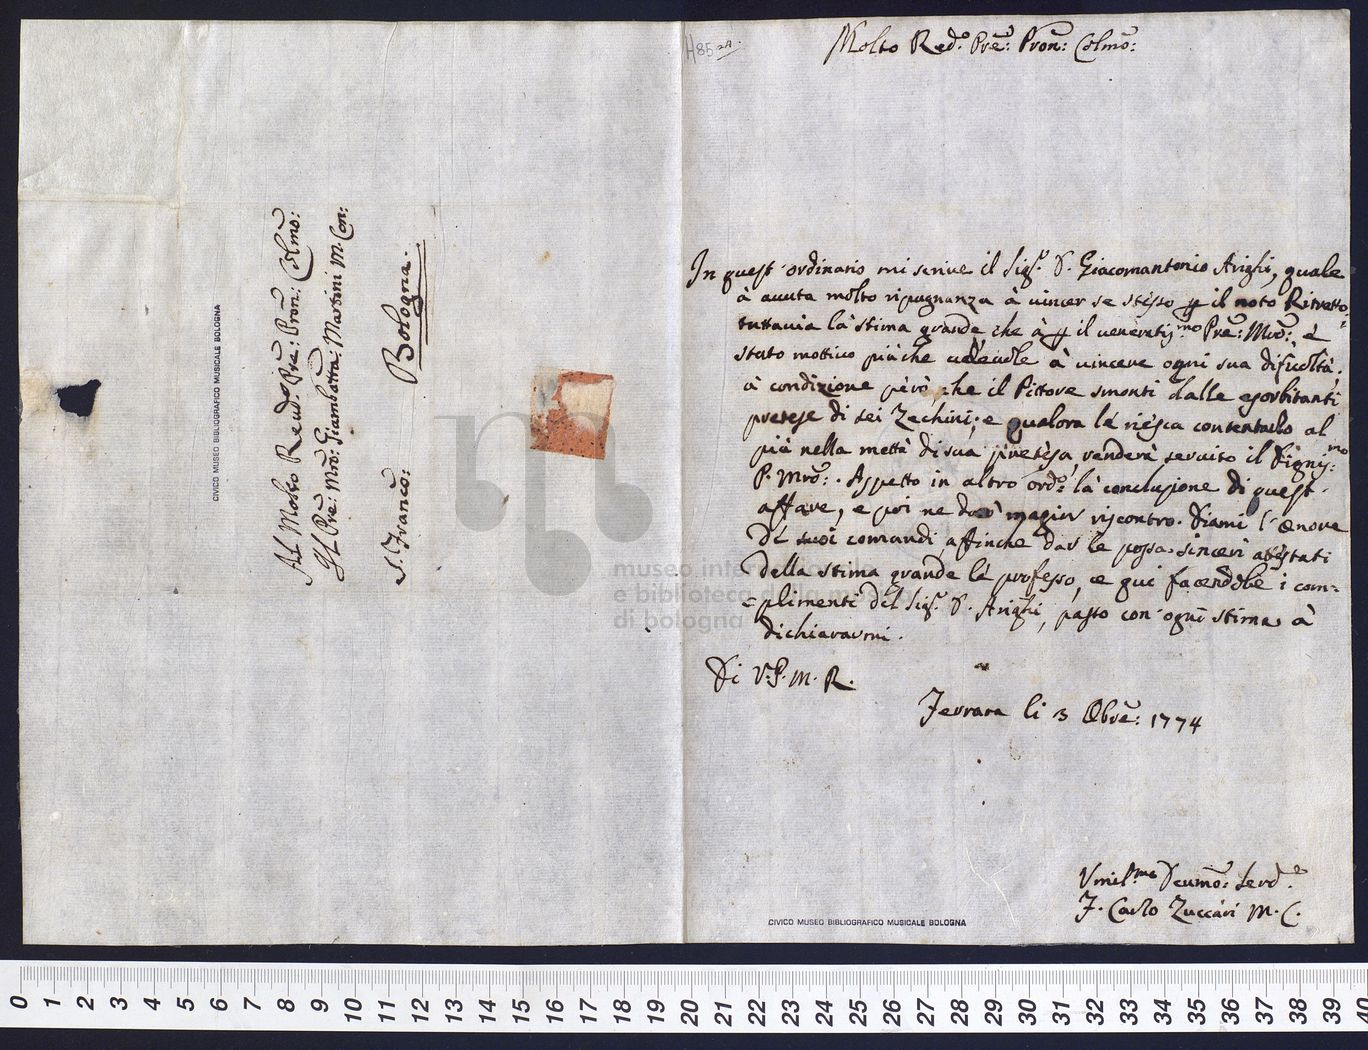 Al Molto Revd.o Pre: Pron: Colmo:
Il Pre: Mro: Giambatta: Martini M. Con:
S. Franco:
Bologna.
CIVICO MUSEO BIBLIOGRAFICO MUSICALE BOLOGNA
museo internazionale
e biblioteca della musica
di bologna
H85
Molto Red.o Pre: Pron: Colmo:
In quest' ordinario mi scrive il Sig.r D. Giacomantonio Arighi, quale
à avuta molto ripugnanza à vincer se stesso p il noto Ritratto:
tuttavia la stima grande che à p il veneratis.mo Pre: Mro:, è
stato mottivo più che valevole à vincere ogni sua dificoltà,
à condizione però, che il Pittore smonti dalle esorbitanti
pretese di sei Zechini; e qualora le riesca contentarlo al
più nella mettà di sua pretesa, renderà servito il Dignis:mo
P. Mro: . Aspetto in altro ord.o la conclusione di quest'
affare, e poi ne darò magior riscontro. Diami l' onore
de suoi comandi affinche dar le possa sinceri attestati
della stima grande le professo, e qui facendole i com=
=plimenti del Sig.r D. Arighi, passo con ogni stima à
dichiararmi.
Di V. P. M. R.
Ferrara li 3 Obre: 1774
Umil.mo Devmo: Serd.e
F. Carlo Zuccari M. C.
CIVICO MUSEO BIBLIOGRAFICO MUSICALE BOLOGNA
0 1 2 3 4 5 6 7 8 9 10 11 12 13 14 15 16 17 18 19 20 21 22 23 24 25 26 27 28 29 30 31 32 33 34 35 36 37 38 39 40